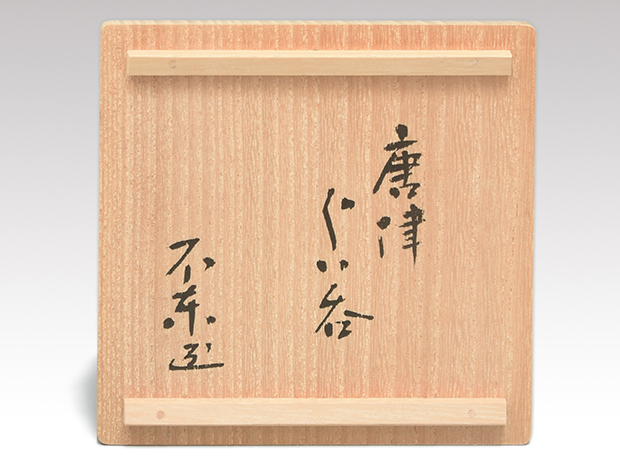 唐津
ぐい呑
不東造